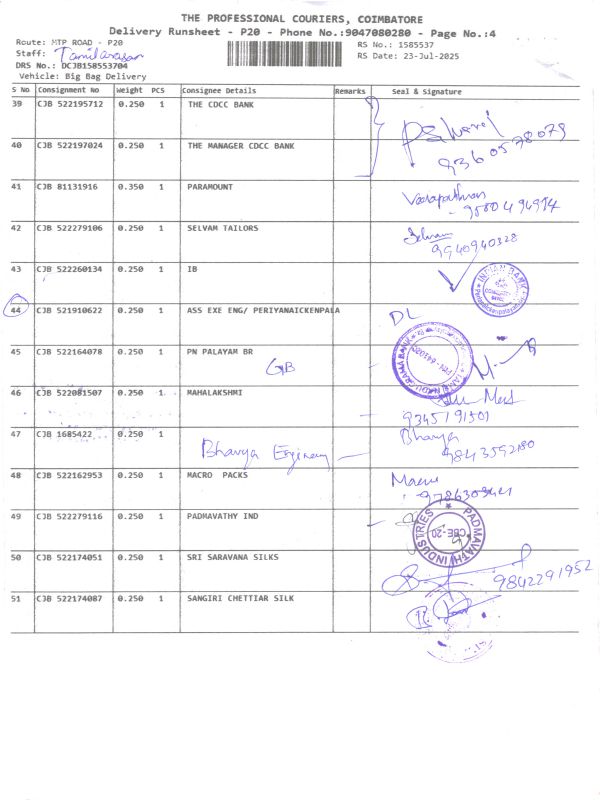 THE PROFESSIONAL COURIERS, COIMBATORE
Delivery Runsheet - P20 - Phone No.:9047080280 - Page No.:4
Route: MTP ROAD - P20
RS No.: 1585537
Staff: Tamilarasan
RS Date: 23-Jul-2025
DRS No.: DCJB158553704
Vehicle: Big Bag Delivery
S No Consignment No Weight PCS Consignee Details Remarks Seal & Signature
39 CJB 522195712 0.250 1 THE CDCC BANK
9360578079
40 CJB 522197024 0.250 1 THE MANAGER CDCC BANK
41 CJB 81131916 0.350 1 PARAMOUNT
42 CJB 522279106 0.250 1 SELVAM TAILORS
Selvam
9940940328
43 CJB 522260134 0.250 1 IB
INDIAN BANK
44 CJB 521910622 0.250 1 ASS EXE ENG/ PERIYANAICKENPALA
DL
45 CJB 522164078 0.250 1 PN PALAYAM BR
TAMIL NADU GRAMA BANK
46 CJB 522081507 0.250 1 MAHALAKSHMI
9345191501
47 CJB 1685422 0.250 1
Bhavya Engineering
Bhavya
9843592180
48 CJB 522162953 0.250 1 MACRO PACKS
49 CJB 522279116 0.250 1 PADMAVATHY IND
PADMAVATHI INDUSTRIES
CBE-20
50 CJB 522174051 0.250 1 SRI SARAVANA SILKS
9842291952
51 CJB 522174087 0.250 1 SANGIRI CHETTIAR SILK